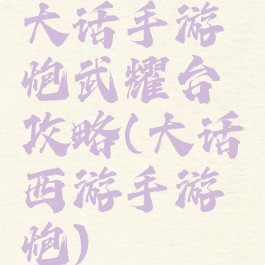 大话手游
炮武耀台
攻略(大话
西游手游
炮)